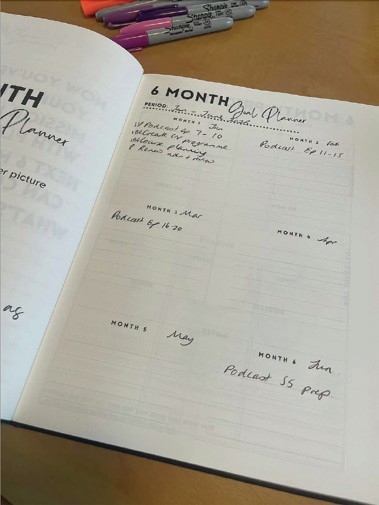 Sharpie
Sharpie
Sharpie
6 MONTH Goal Planner
PERIOD: Jan -
MONTH 1 Jan
Podcast Ep 7-10
Create programme
planning
MONTH 2 Feb
Podcast Ep 11-15
MONTH 3 Mar
Podcast Ep 16-20
MONTH 4 Apr
MONTH 5 May
MONTH 6 Jun
Podcast S5 Prep
Planner
picture
as